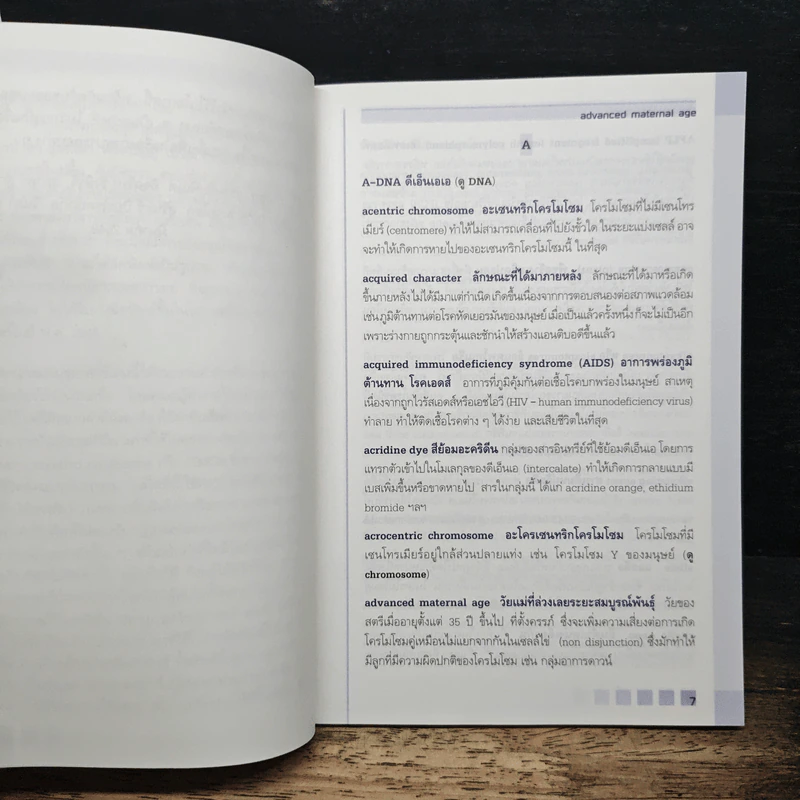 advanced maternal age
A
A-DNA ดีเอ็นเอเอ (ดู DNA)
acentric chromosome อะเซนทริกโครโมโซม โครโมโซมที่ไม่มีเซนโทร
เมียร์ (centromere) ทำให้ไม่สามารถเคลื่อนที่ไปยังขั้วใด ในระยะแบ่งเซลล์ อาจ
จะทำให้เกิดการหายไปของอะเซนทริกโครโมโซมนี้ ในที่สุด
acquired character ลักษณะที่ได้มาภายหลัง ลักษณะที่ได้มาหรือเกิด
ขึ้นภายหลัง ไม่ได้มีมาแต่กำเนิด เกิดขึ้นเนื่องจากการตอบสนองต่อสภาพแวดล้อม
เช่น ภูมิต้านทานต่อโรคหัดเยอรมันของมนุษย์ เมื่อเป็นแล้วครั้งหนึ่ง ก็จะไม่เป็นอีก
เพราะร่างกายถูกกระตุ้นและชักนำให้สร้างแอนติบอดีขึ้นแล้ว
acquired immunodeficiency syndrome (AIDS) อาการพร่องภูมิ
ต้านทาน โรคเอดส์ อาการที่ภูมิคุ้มกันต่อเชื้อโรคบกพร่องในมนุษย์ สาเหตุ
เนื่องจากถูกไวรัสเอดส์หรือเอชไอวี (HIV – human immunodeficiency virus)
ทำลาย ทำให้ติดเชื้อโรคต่าง ๆ ได้ง่าย และเสียชีวิตในที่สุด
acridine dye สีย้อมอะคริดีน กลุ่มของสารอินทรีย์ที่ใช้ย้อมดีเอ็นเอ โดยการ
แทรกตัวเข้าไปในโมเลกุลของดีเอ็นเอ (intercalate) ทำให้เกิดการกลายแบบมี
เบสเพิ่มขึ้นหรือขาดหายไป สารในกลุ่มนี้ ได้แก่ acridine orange, ethidium
bromide ฯลฯ
acrocentric chromosome อะโครเซนทริกโครโมโซม โครโมโซมที่มี
เซนโทรเมียร์อยู่ใกล้ส่วนปลายแท่ง เช่น โครโมโซม Y ของมนุษย์ (ดู
chromosome)
advanced maternal age วัยแม่ที่ล่วงเลยระยะสมบูรณ์พันธุ์ วัยของ
สตรีเมื่ออายุตั้งแต่ 35 ปี ขึ้นไป ที่ตั้งครรภ์ ซึ่งจะเพิ่มความเสี่ยงต่อการเกิด
โครโมโซมคู่เหมือนไม่แยกจากกันในเซลล์ไข่ (non disjunction) ซึ่งมักทำให้
มีลูกที่มีความผิดปกติของโครโมโซม เช่น กลุ่มอาการดาวน์
7